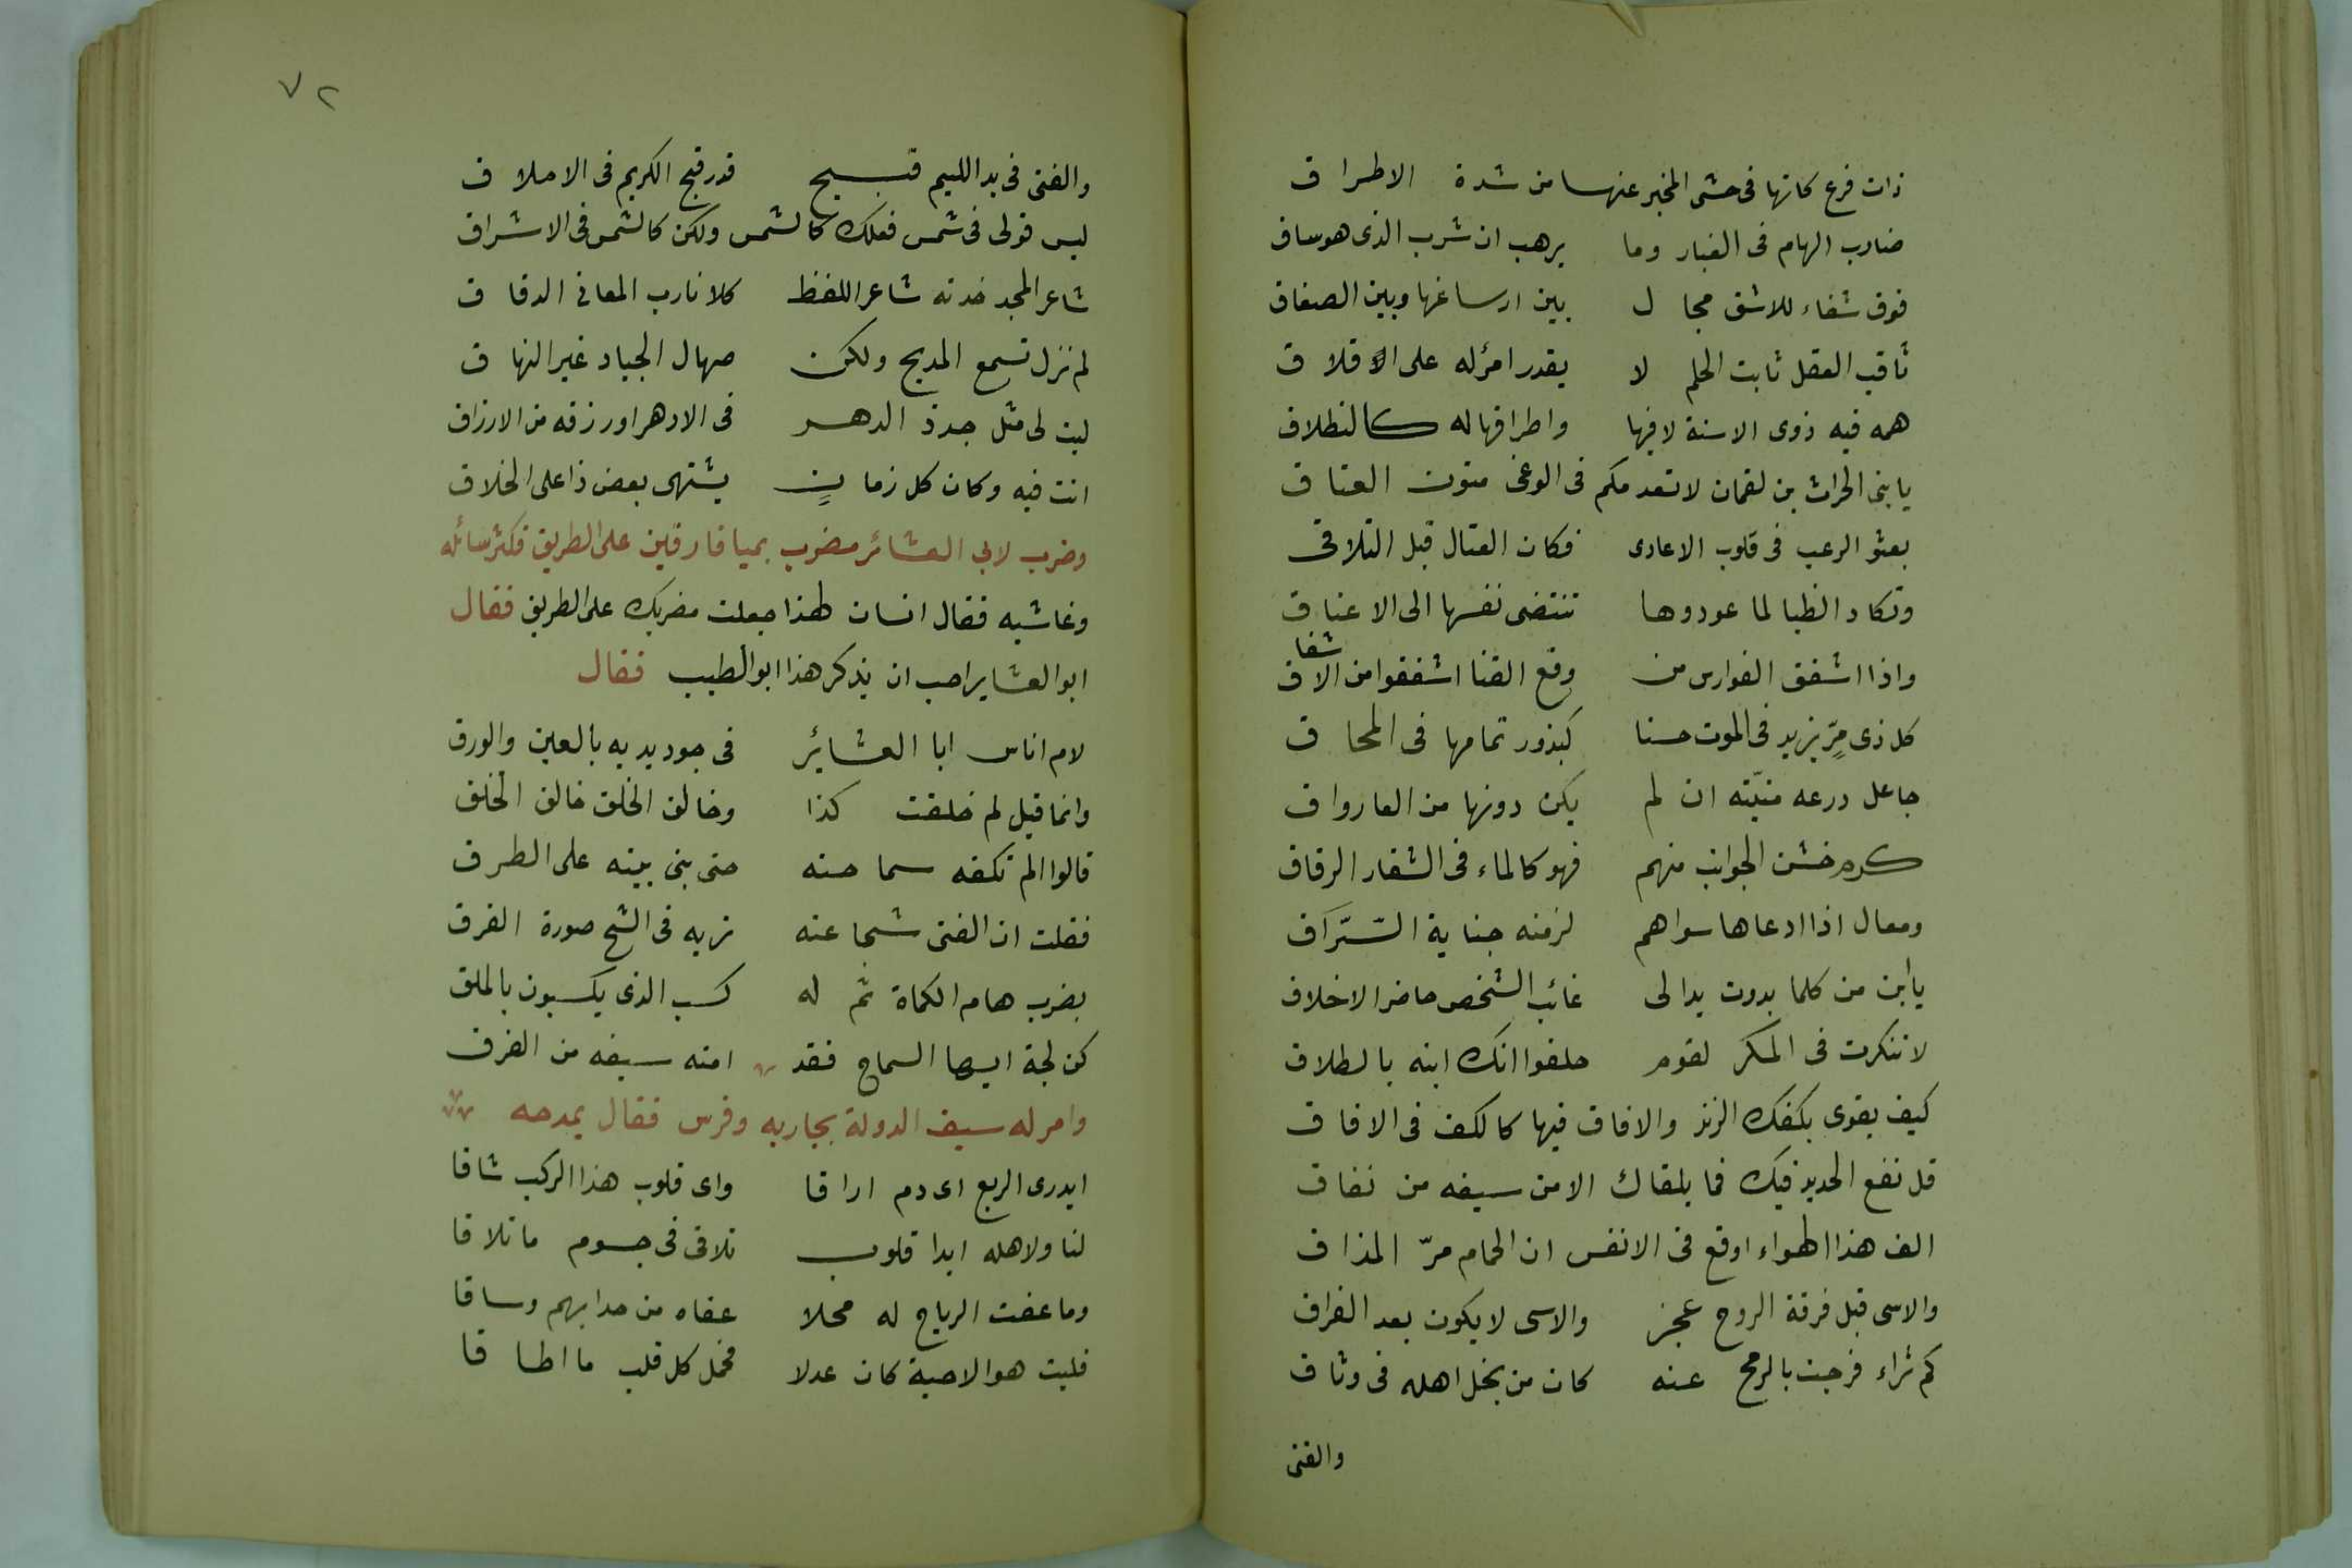 ذات فرع كانها فى حشى المخبر عنها من شدة الاطراق
ضارب الهام فى الغبار وما يرهب ان شرب الذى هو ساق
فوق شقاء للاشق مجال بين ارساغها وبين الصفاق
ثاقب العقل ثابت الحلم لا يقدر امرٔ له على الاقلاق
همه فيه ذوى الاسنة لا فيها واطرافها له كالنطلاق
يا بنى الحراث بن لقمان لا تعدمكم فى الوغى متون العتاق
بعثو الرعب فى قلوب الاعادى فكان القتال قبل التلاقى
وتكاد الظبا لما عودوها تنتضى نفسها الى الاعناق
واذا اشفق الفوارس من وقع القنا اشفقوا من الاشفاق
كل ذى مرٍّ يزيد فى الموت حسنا كبذور تمامها فى المحاق
جاعل درعه منيّته ان لم يكن دونها من العار واق
كرم خشن الجوانب منهم فهو كالماء فى الشفار الرقاق
ومعال اذا ادعاها سواهم لزمته جناية السّرّاق
يا ابن من كلما بدوت بدا لى غائب الشخص حاضر الاخلاق
لا تنكرت فى المكر لقوم حلفوا انك ابنه بالطلاق
كيف يقوى بكفك الزند والافاق فيها كالكف فى الافاق
قل نفع الحديد فيك فما يلقاك الا من سيفه من نفاق
الف هذا الهواء اوقع فى الانفس ان الحمام مرّ المذاق
والاسى قبل فرقة الروح عجز والاسى لا يكون بعد الفراق
كم ثراء فرجت بالرمح عنه كان من بخل اهله فى وثاق
والغنى
٧٢
والغنى فى يد اللييم قبيح قدر قبح الكريم فى الاملاق
ليس قولى فى شمس فعلك كالشمس ولكن كالشمس فى الاشراق
شاعر المجد خدنه شاعر اللفظ كلانا رب المعانى الدقاق
لم نزل تسمع المديح ولكن صهال الجياد غير النهاق
ليت لى مثل جدذ الدهر فى الادهر اورزقه من الارزاق
انت فيه وكان كل زمانٍ يشتهى بعض ذا على الخلاق
وضرب لابى العشائر مضرب بميافارقين على الطريق فكثر سائله
وغاشيه فقال انسان لهذا جعلت مضربك على الطريق فقال
ابو العشاير احب ان يذكر هذا ابو الطيب فقال
لام اناس ابا العشائر فى جود يديه بالعين والورق
وانما قيل لم خلقت كذا وخالق الخلق خالق الخلق
قالوا الم تكفه سماحته حتى بنى بيته على الطرق
فقلت ان الفتى شجاعته تريه فى الشح صورة الفرق
بضرب هام الكماة ثم له كسب الذى يكسبون بالملق
كن لجة ايها السماح فقد امنه سيفه من الغرق
وامر له سيف الدولة بجاريه وفرس فقال يمدحه
ايدرى الربع اى دم اراقا واى قلوب هذا الركب شاقا
لنا ولاهله ابدا قلوب تلاقى فى جسوم ما تلاقا
وما عفت الرياح له محلا عفاه من حدا بهم وساقا
فليت هوا الاحبة كان عدلا فحمل كل قلب ما اطاقا